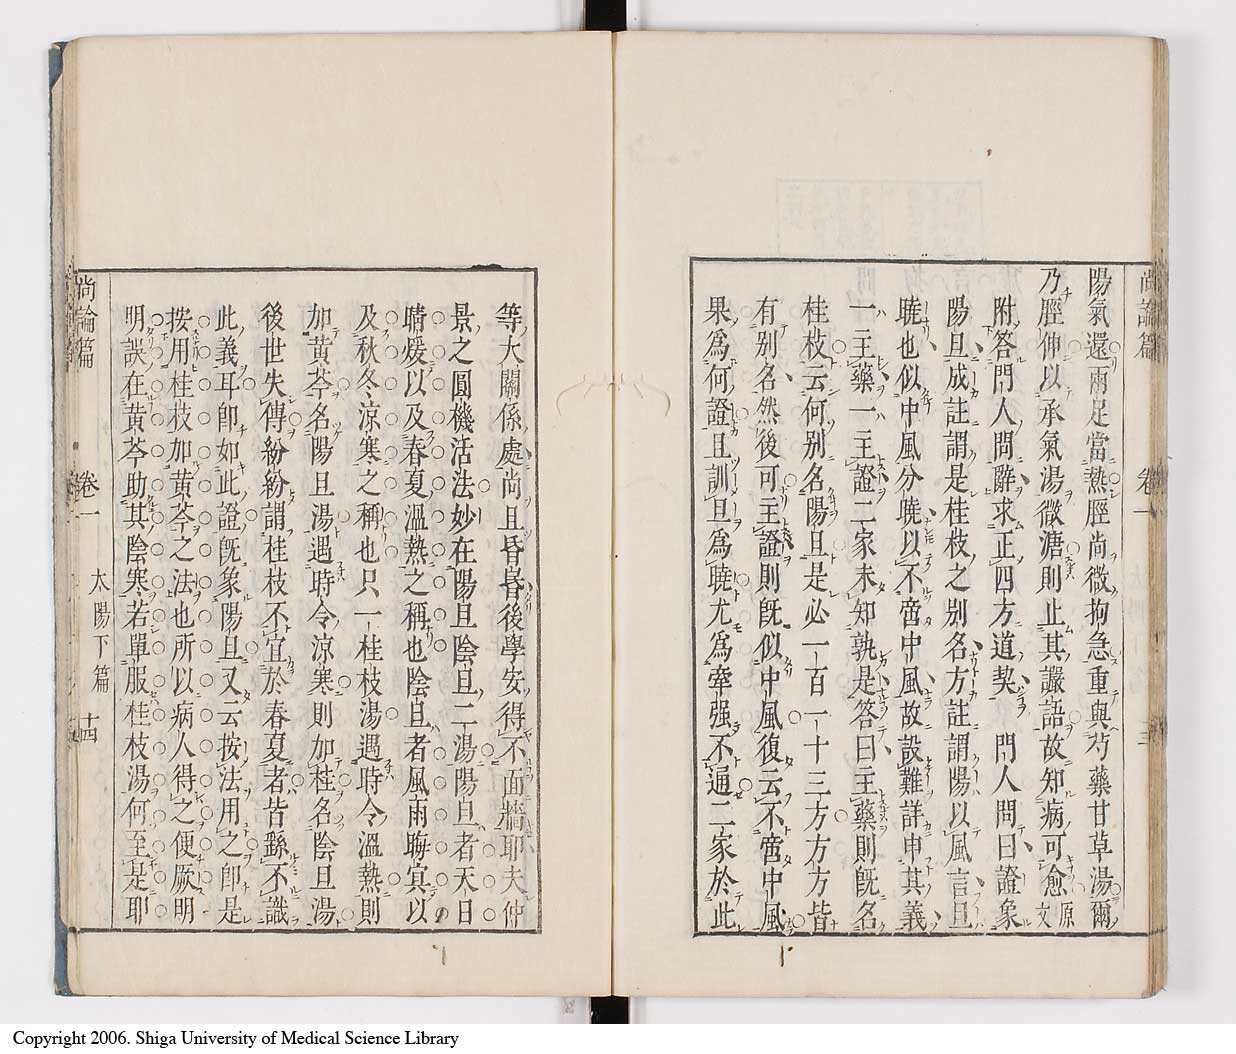 尚論篇 卷一 三
陽氣還兩足當熱脛尚微拘急重與芍藥甘草湯爾
乃脛伸以承氣湯微溏則止其讝語故知病可愈原文
附答門人問辭求正四方道契 門人問曰證象
陽旦成註謂是桂枝之别名方註謂陽以風言旦
曉也似中風分曉以不啻中風故設難詳申其義
一主藥一主證二家未知孰是答曰主藥則旣名
桂枝云何别名陽旦是必一百一十三方方皆
有别名然後可主證則旣似中風復云不啻中風
果爲何證且訓旦爲曉尤爲牽强不通二家於此
等大關係處尚且昏昏後學安得不面牆耶夫仲
景之圓機活法妙在陽旦陰旦二湯陽旦者天日
晴煖以及春夏溫熱之稱也陰旦者風雨晦冥以
及秋冬凉寒之稱也只一桂枝湯遇時令溫熱則
加黄芩名陽旦湯遇時令凉寒則加桂名陰旦湯
後世失傳紛紛謂桂枝不宜於春夏者皆繇不識
此義耳卽如此證旣象陽旦又云按法用之卽是
按用桂枝加黄芩之法也所以病人得之便厥明
明誤在黄芩助其陰寒若單服桂枝湯何至是耶
尚論篇 卷一 太陽下篇 十四
Copyright 2006. Shiga University of Medical Science Library